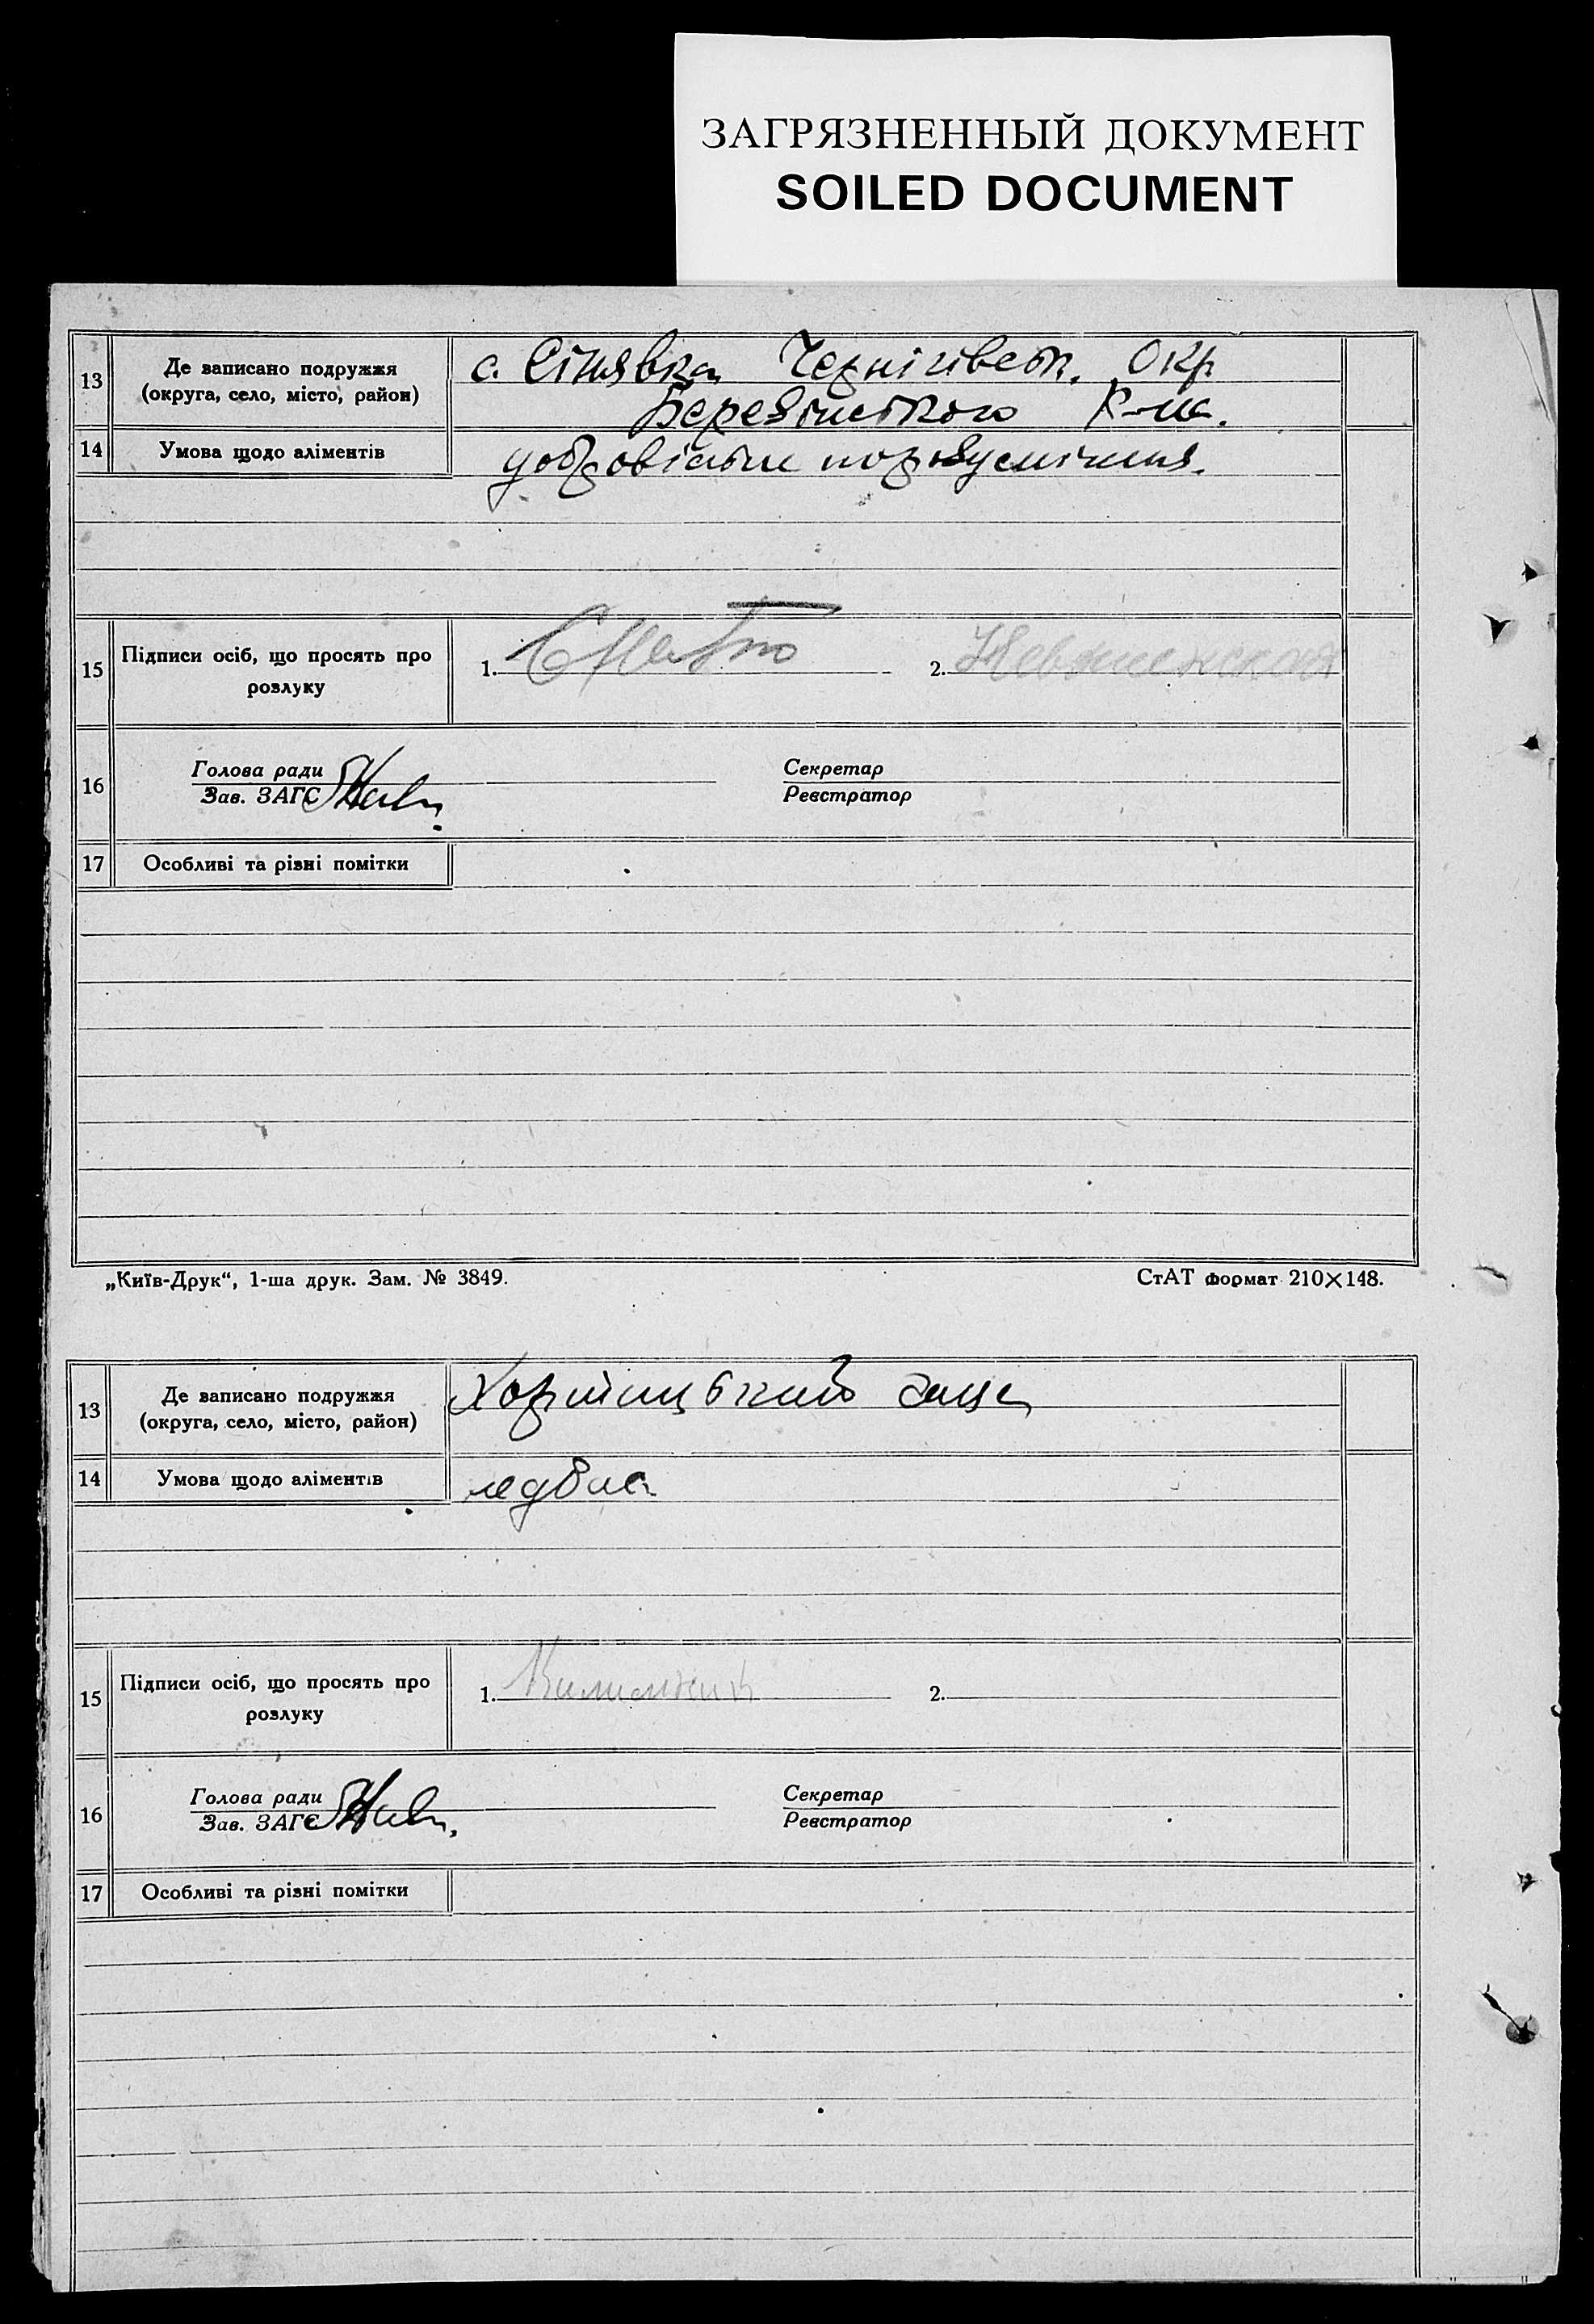 ЗАГРЯЗНЕННЫЙ ДОКУМЕНТ
SOILED DOCUMENT
13 Де записано подружжя
(округа, село, місто, район)
с. Сінявка Чернігівськ. Окр.
Березінського Р-на.
14 Умова щодо аліментів
15 Підписи осіб, що просять про
розлуку
1. 2.
16 Голова ради Секретар
Зав. ЗАГС Реєстратор
17 Особливі та різні помітки
„Київ-Друк“, 1-ша друк. Зам. № 3849. СтАТ формат 210×148.
13 Де записано подружжя
(округа, село, місто, район)
14 Умова щодо аліментів
15 Підписи осіб, що просять про
розлуку
1. 2.
16 Голова ради Секретар
Зав. ЗАГС Реєстратор
17 Особливі та різні помітки